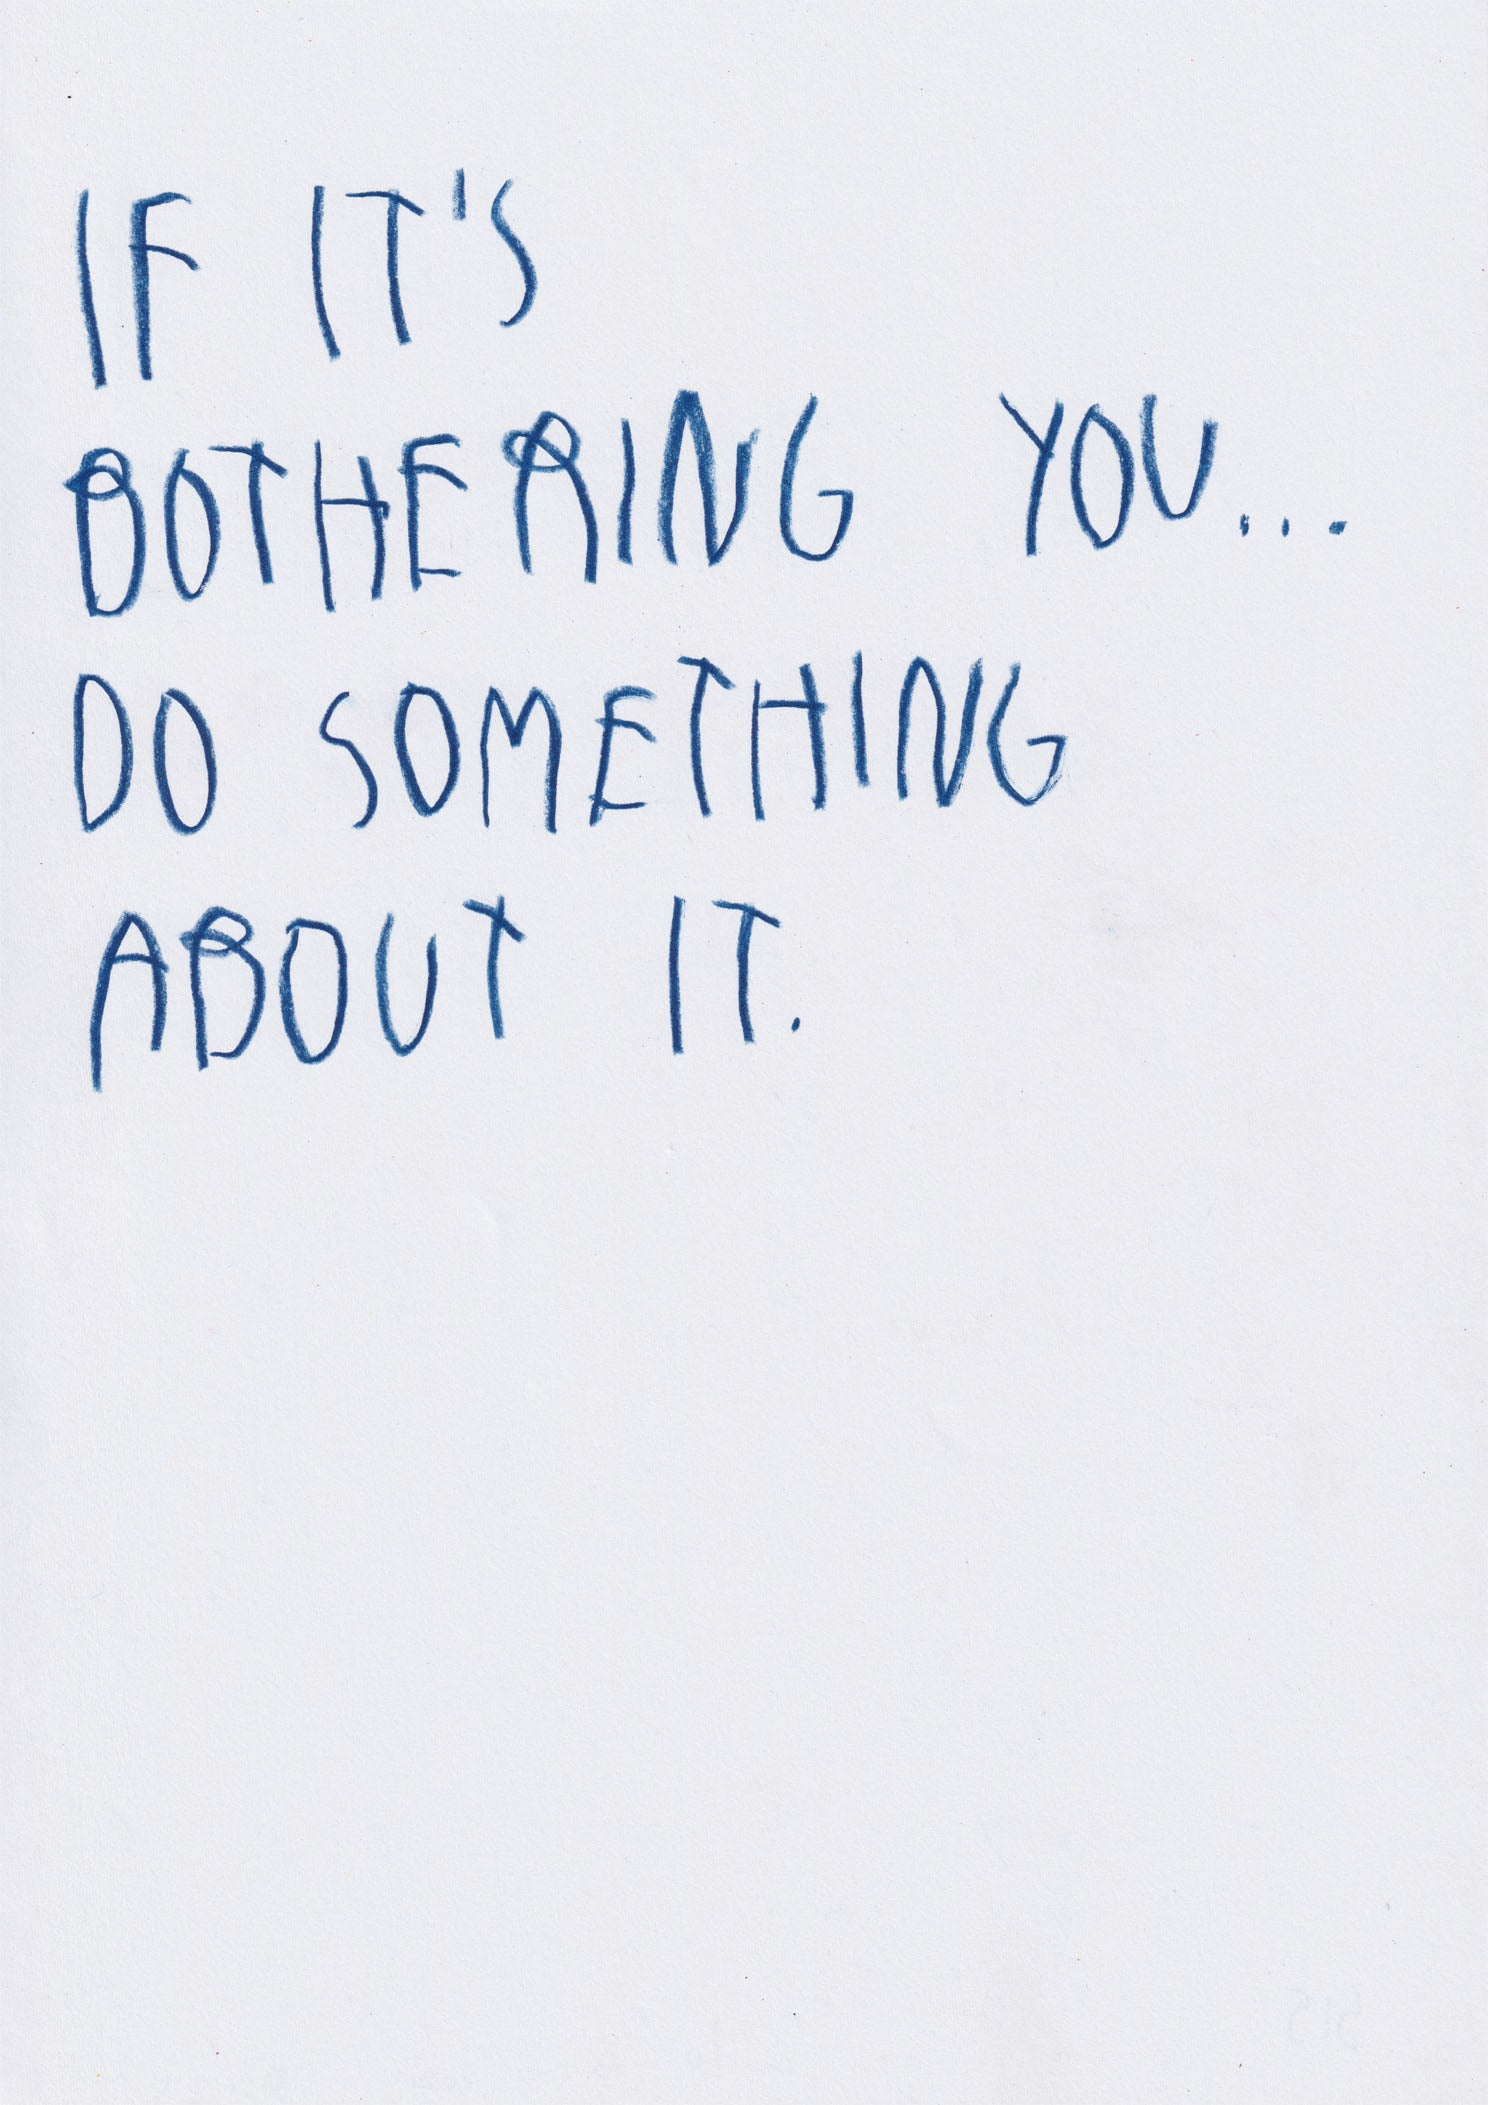 IF IT'S
BOTHERING YOU...
DO SOMETHING
ABOUT IT.